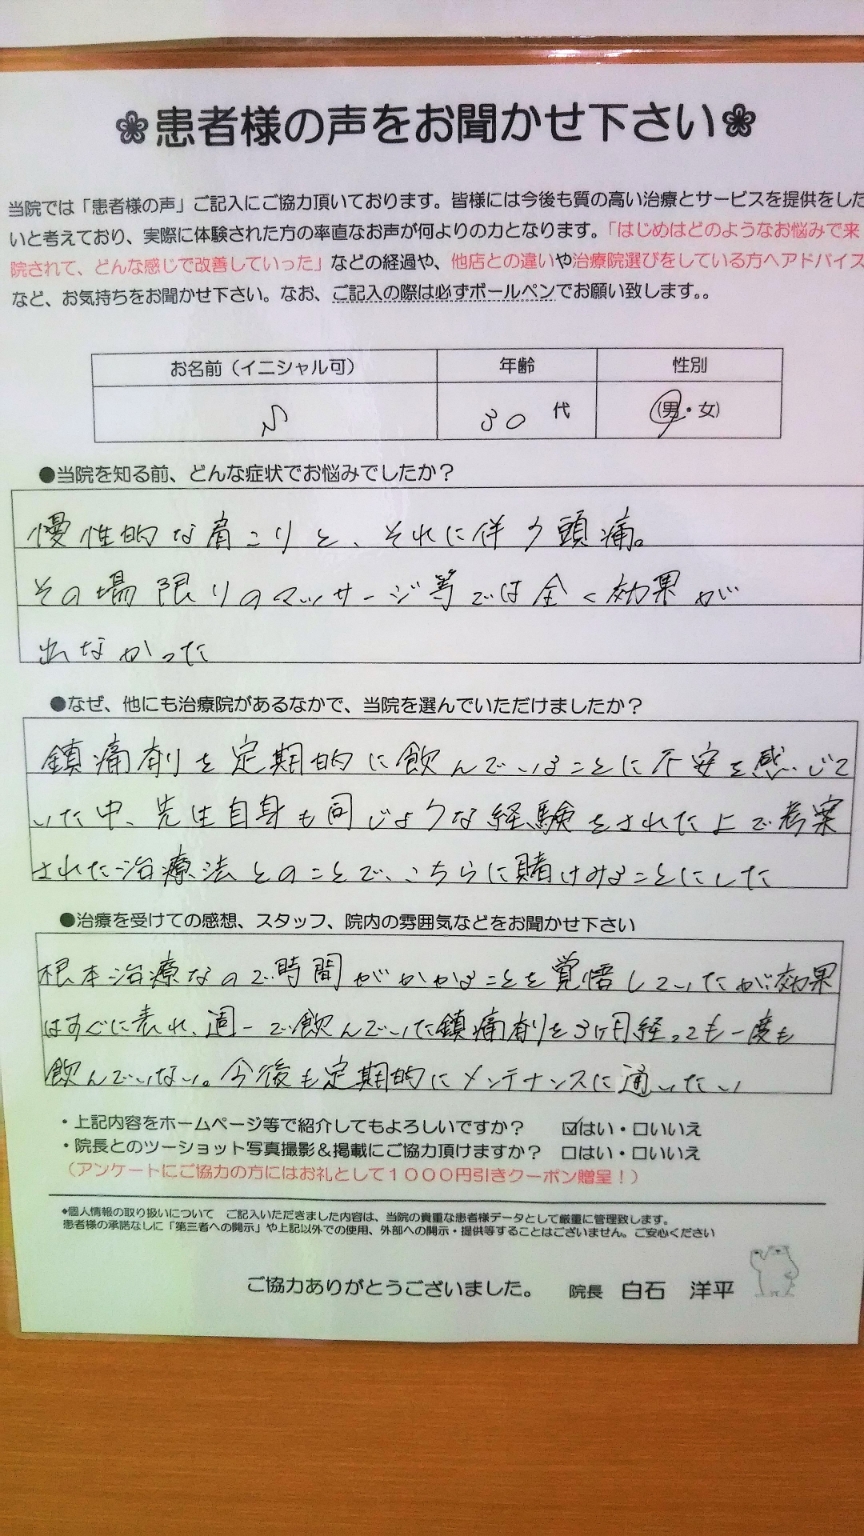 ❀患者様の声をお聞かせ下さい❀
当院では「患者様の声」ご記入にご協力頂いております。皆様には今後も質の高い治療とサービスを提供をした
いと考えており、実際に体験された方の率直なお声が何よりの力となります。「はじめはどのようなお悩みで来
院されて、どんな感じで改善していった」などの経過や、他店との違いや治療院選びをしている方へアドバイス
など、お気持ちをお聞かせ下さい。なお、ご記入の際は必ずボールペンでお願い致します。。
お名前（イニシャル可） 年齢 性別
30 代 (男・女)
●当院を知る前、どんな症状でお悩みでしたか？
慢性的な肩こりと、それに伴う頭痛。
その場限りのマッサージ等では全く効果が
出なかった
●なぜ、他にも治療院があるなかで、当院を選んでいただけましたか？
鎮痛剤を定期的に飲んでいることに不安を感じて
いた中、先生自身も同じような経験をされた上で考案
された治療法とのことで、こちらに賭けみることにした
●治療を受けての感想、スタッフ、院内の雰囲気などをお聞かせ下さい
根本治療なので時間がかかることを覚悟していたが効果
はすぐに表れ、週一で飲んでいた鎮痛剤を3ヶ月経っても一度も
飲んでいない。今後も定期的にメンテナンスに通いたい
・上記内容をホームページ等で紹介してもよろしいですか？ ☑はい・□いいえ
・院長とのツーショット写真撮影＆掲載にご協力頂けますか？ □はい・□いいえ
（アンケートにご協力の方にはお礼として１０００円引きクーポン贈呈！）
◆個人情報の取り扱いについて ご記入いただきました内容は、当院の貴重な患者様データとして厳重に管理致します。
患者様の承諾なしに「第三者への開示」や上記以外での使用、外部への開示・提供等することはございません。ご安心ください
ご協力ありがとうございました。 院長 白石 洋平